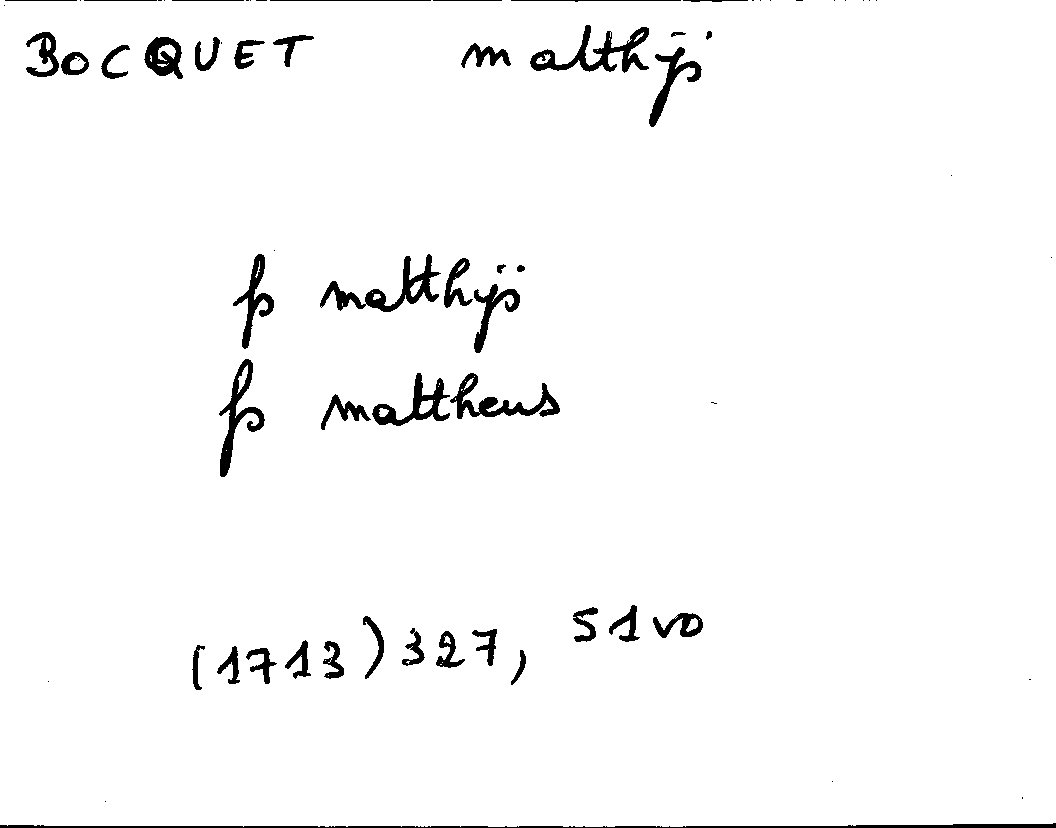 BOCQUET matthijs
fs matthijs
fs mattheus
(1713) 327, 51vo